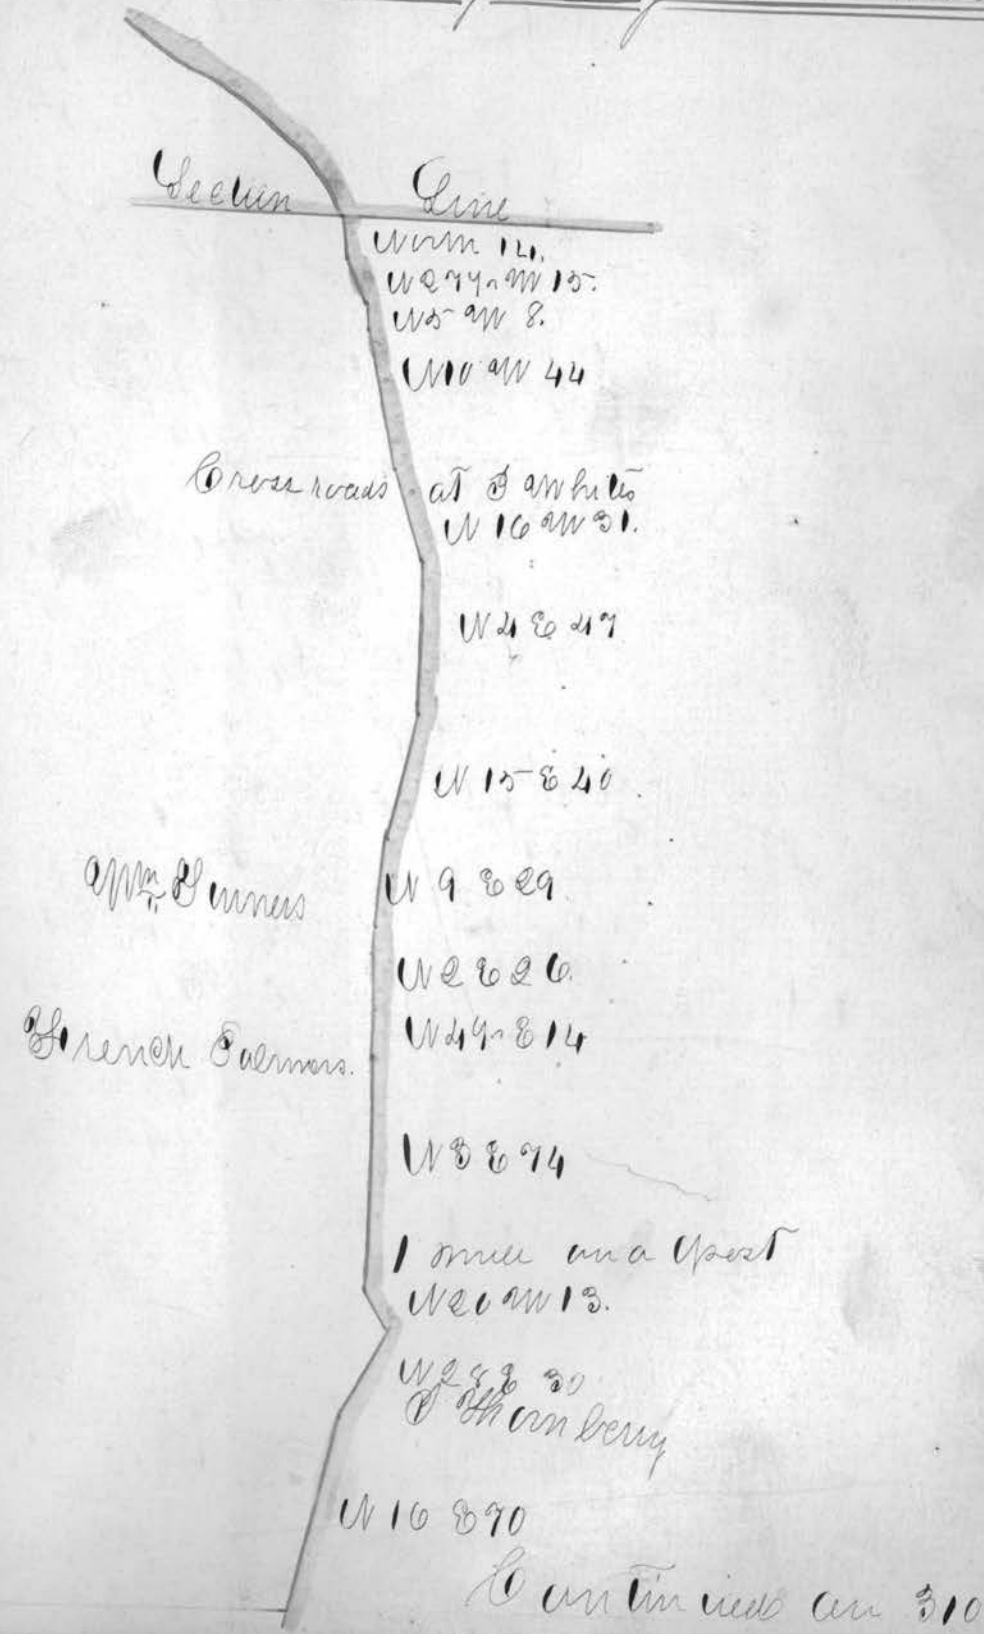 Section Line
North 14.
N 27½ W 15.
N 5 W 8.
N10 W 44
Cross roads at Whites
N 16 W 31.
N 4 E 47
N 15 E 40
Wm
N 9 E 29
N 2 E 26.
N 4½ E 14
French
N 3 E 74
1 mile and a Post
N 20 W 13.
N 28 E 30
Thornberry
N 16 E 70
Continued on 310